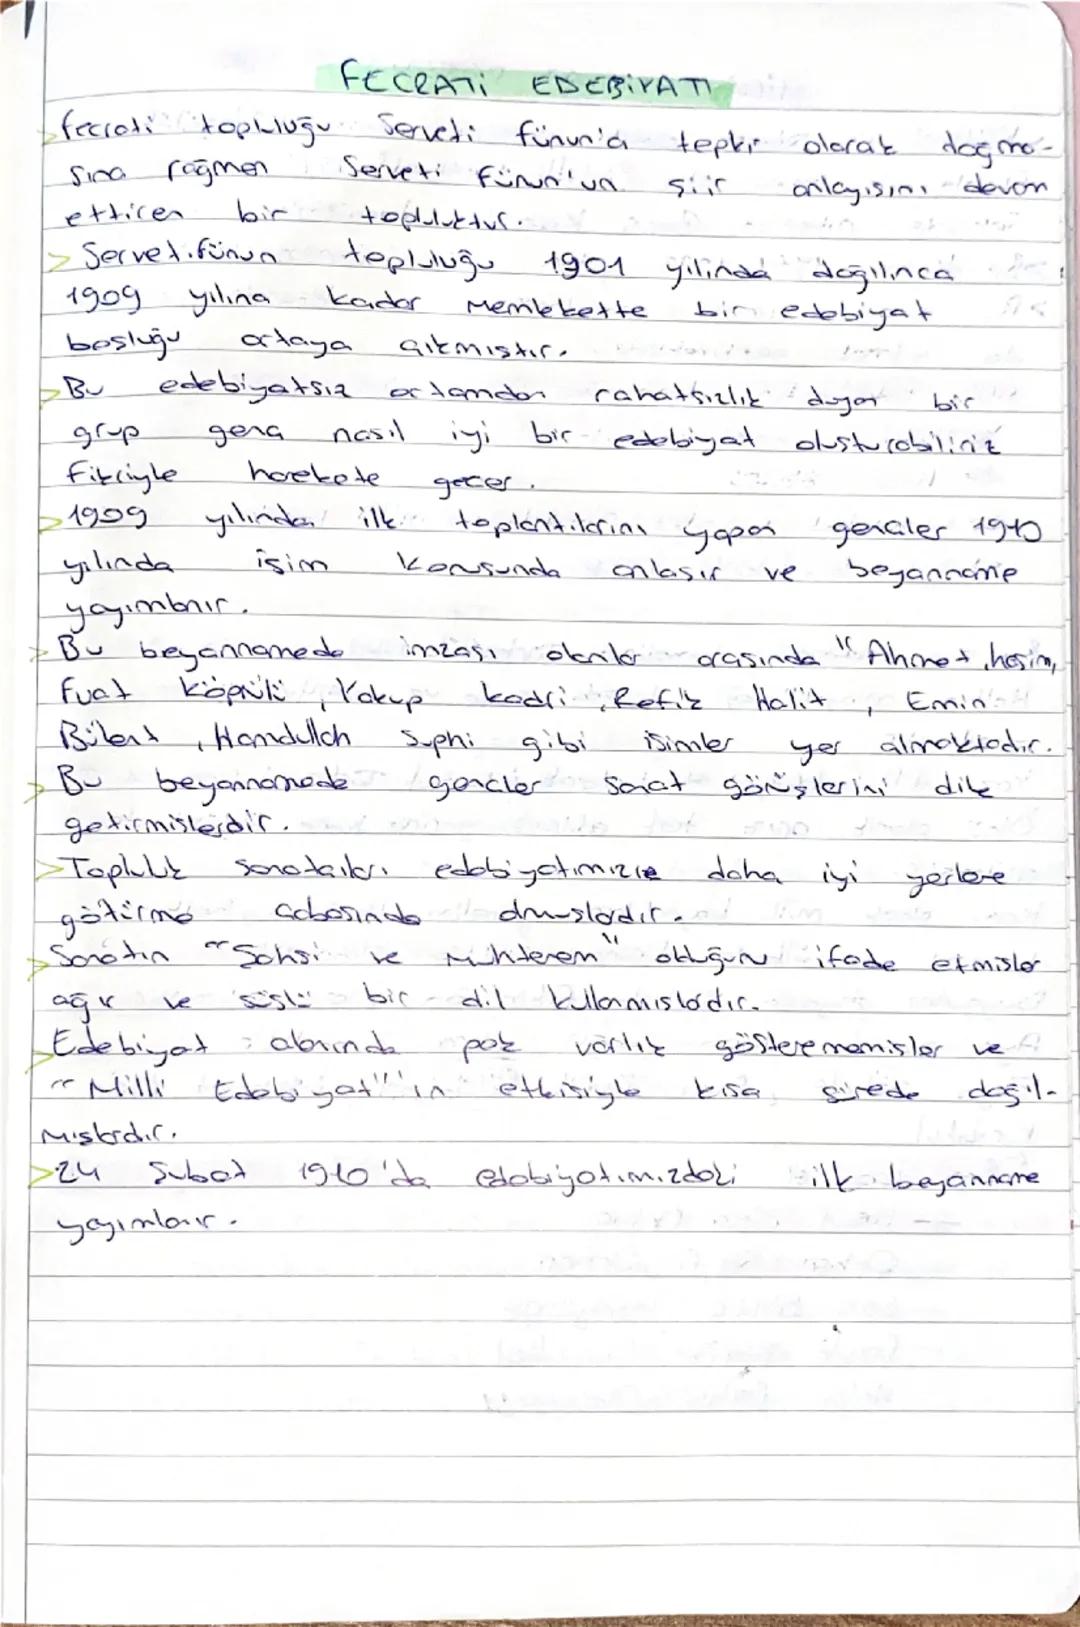 FECRATİ EDEBİYATI
fecrati topluluğu Serveti fünun'a tepki olarak doğma-
sına rağmen Serveti fünun'un şiir anlayışını devam
ettiren bir topluluktur.
> Servet.fünun topluluğu 1901 yılında dağılınca
1909 yılına kadar memlekette bir edebiyat
boşluğu ortaya çıkmıştır.
>Bu edebiyatsız ortamdan rahatsızlık duyan bir
grup genç nasıl iyi bir edebiyat oluşturabiliriz
fikriyle harekete geçer.
>1909 yılında ilk toplantılarını yapan gençler 1910
yılında isim konusunda anlaşır ve beyanname
yayımlanır.
> Bu beyannamede imzası olanlar arasında "Ahmet haşim,
fuat köprülü, Yakup kadri, Refik Halit, Emin
Bülent, Hamdullah Suphi gibi isimler yer almaktadır.
> Bu beyannamede gençler Sanat görüşlerini dile
getirmişlerdir.
>Topluluk sanatçıları edebiyatımızı daha iyi yerlere
götürme çabasında olmuşlardır.
>Sanatın "Şahsi ve Muhterem" olduğunu ifade etmişler
ağır ve süslü bir dil kullanmışlardır.
>Edebiyat alanında pek varlık gösterememişler ve
"Milli Edebiyat"ın etkisiyle kısa sürede dağıl-
mışlardır.
>24 Şubat 1910'da edebiyatımızdaki ilk beyanname
yayımlanır.